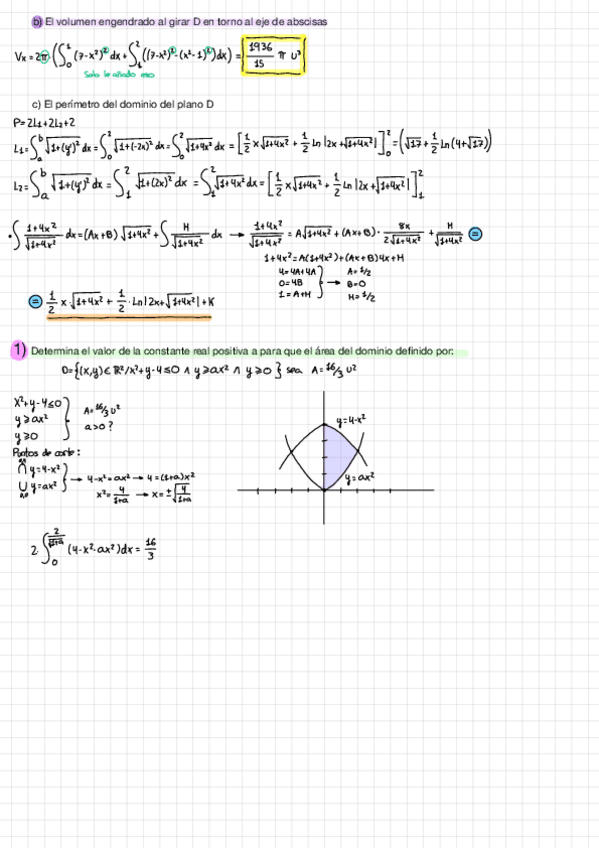 b) El volumen engendrado al girar D en torno al eje de abscisas
Vx = 2π (∫₀¹ (7-x²)² dx + ∫₁² ((7-x²)² - (x²-1)²) dx) = 1936/15 π u³
Solo le añado eso
c) El perímetro del dominio del plano D
P=2L₁+2L₂+2
L₁=∫ₐᵇ √(1+(y')²) dx = ∫₀² √(1+(-2x)²) dx = ∫₀² √(1+4x²) dx = [1/2 x√(1+4x²) + 1/2 Ln|2x+√(1+4x²)|]₀² = (√17 + 1/2 ln(4+√17))
L₂=∫ₐᵇ √(1+(y')²) dx = ∫₁² √(1+(2x)²) dx = ∫₁² √(1+4x²) dx = [1/2 x√(1+4x²) + 1/2 Ln|2x+√(1+4x²)|]₁²
• ∫ (1+4x²)/√(1+4x²) dx = (Ax+B) √(1+4x²) + ∫ H/√(1+4x²) dx → (1+4x²)/√(1+4x²) = A√(1+4x²) + (Ax+B) · 8x/(2√(1+4x²)) + H/√(1+4x²) =
1+4x²=A(1+4x²)+(Ax+B)4x+H
4=4A+4A } A=1/2
0=4B } → B=0
1=A+H } H=1/2
= 1/2 x·√(1+4x²) + 1/2 · Ln|2x+√(1+4x²)| + K
1) Determina el valor de la constante real positiva a para que el área del dominio definido por:
D={(x,y)∈ℝ²/x²+y-4≤0 ∧ y≥ax² ∧ y≥0} sea A=16/3 u²
x²+y-4≤0 }
y≥ax² } A=16/3 u²
y≥0 } a>0?
Puntos de corte:
∩ y=4-x² }
∪ y=ax² } → 4-x²=ax² → 4=(1+a)x²
x²=4/(1+a) → x=±√(4/(1+a))
y=4-x²
y=ax²
2·∫₀^(2/√(1+a)) (4-x²-ax²)dx = 16/3